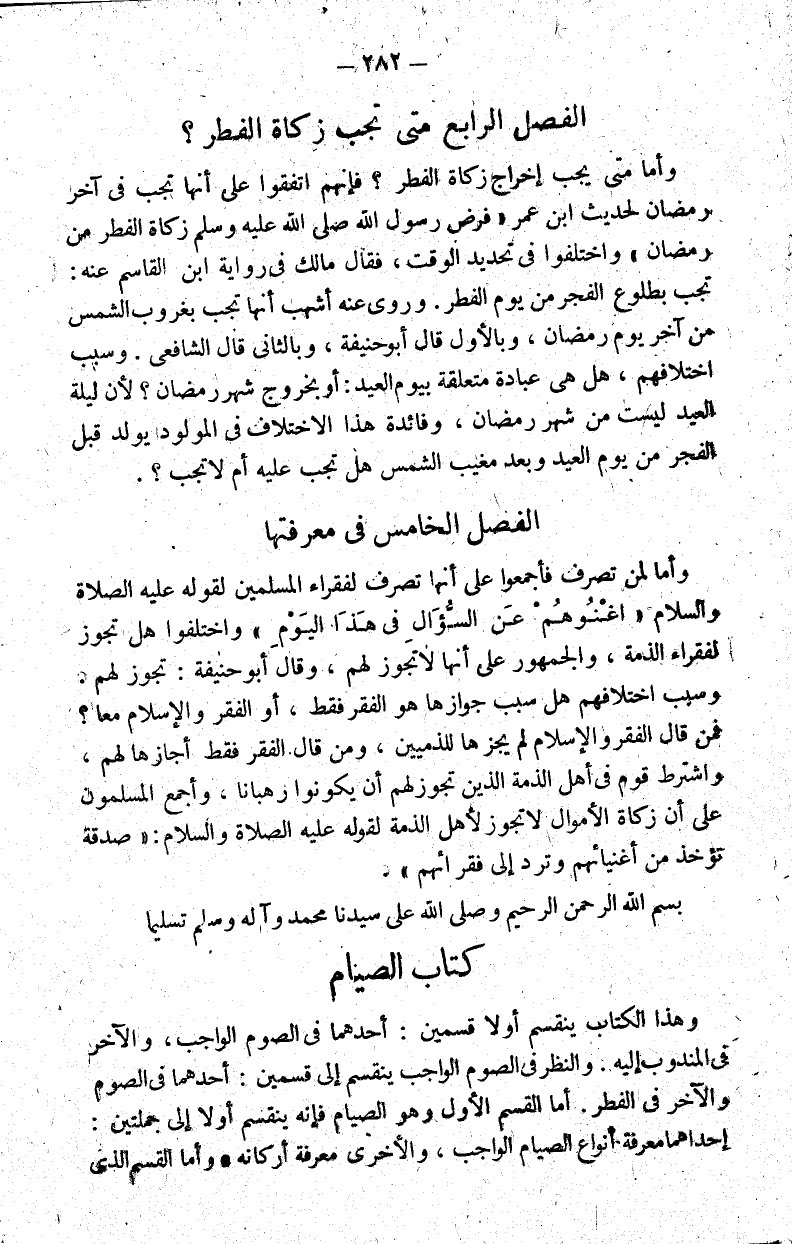 — ٢٨٢ —
الفصل الرابع متى تجب زكاة الفطر ؟
وأما متى يجب إخراج زكاة الفطر ؟ فإنهم اتفقوا على أنها تجب فى آخر
رمضان لحديث ابن عمر « فرض رسول الله صلى الله عليه وسلم زكاة الفطر من
رمضان » واختلفوا فى تحديد الوقت ، فقال مالك فى رواية ابن القاسم عنه :
تجب بطلوع الفجر من يوم الفطر . وروى عنه أشهب أنها تجب بغروب الشمس
من آخر يوم رمضان ، وبالأول قال أبو حنيفة ، وبالثانى قال الشافعى . وسبب
اختلافهم ، هل هى عبادة متعلقة بيوم العيد : أو بخروج شهر رمضان ؟ لأن ليلة
العيد ليست من شهر رمضان ، وفائدة هذا الاختلاف فى المولود يولد قبل
الفجر من يوم العيد وبعد مغيب الشمس هل تجب عليه أم لا تجب ؟ .
الفصل الخامس فى معرفتها
وأما لمن تصرف فأجمعوا على أنها تصرف لفقراء المسلمين لقوله عليه الصلاة
والسلام « اغْنُوهُمْ عَنِ السُّؤَالِ فى هَذَا اليَوْمِ » واختلفوا هل تجوز
لفقراء الذمة ، والجمهور على أنها لا تجوز لهم ، وقال أبو حنيفة : تجوز لهم .
وسبب اختلافهم هل سبب جوازها هو الفقر فقط ، أو الفقر والإسلام معا ؟
فمن قال الفقر والإسلام لم يجزها للذميين ، ومن قال الفقر فقط أجازها لهم ،
واشترط قوم فى أهل الذمة الذين تجوز لهم أن يكونوا رهبانا ، وأجمع المسلمون
على أن زكاة الأموال لا تجوز لأهل الذمة لقوله عليه الصلاة والسلام : « صدقة
تؤخذ من أغنيائهم وترد إلى فقرائهم » .
بسم الله الرحمن الرحيم وصلى الله على سيدنا محمد وآله وسلم تسليما
كتاب الصيام
وهذا الكتاب ينقسم أولا قسمين : أحدهما فى الصوم الواجب ، والآخر
فى المندوب إليه . والنظر فى الصوم الواجب ينقسم إلى قسمين : أحدهما فى الصوم
والآخر فى الفطر . أما القسم الأول وهو الصيام فإنه ينقسم أولا إلى جملتين :
إحداهما معرفة أنواع الصيام الواجب ، والأخرى معرفة أركانه . وأما القسم الذى